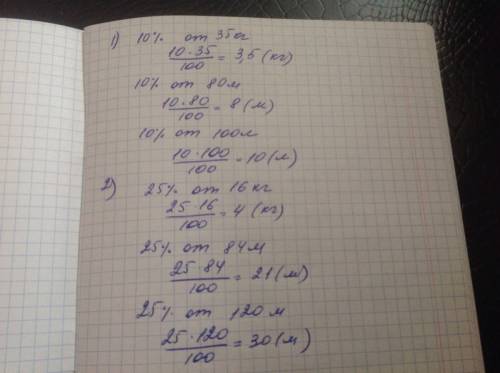 1) 10% от 35кг
10·35/100 = 3,5 (кг)
10% от 80м
10·80/100 = 8 (м)
10% от 100м
10·100/100 = 10 (м)
2) 25% от 16 кг
25·16/100 = 4 (кг)
25% от 84 м
25·84/100 = 21 (м)
25% от 120 м
25·120/100 = 30 (м)